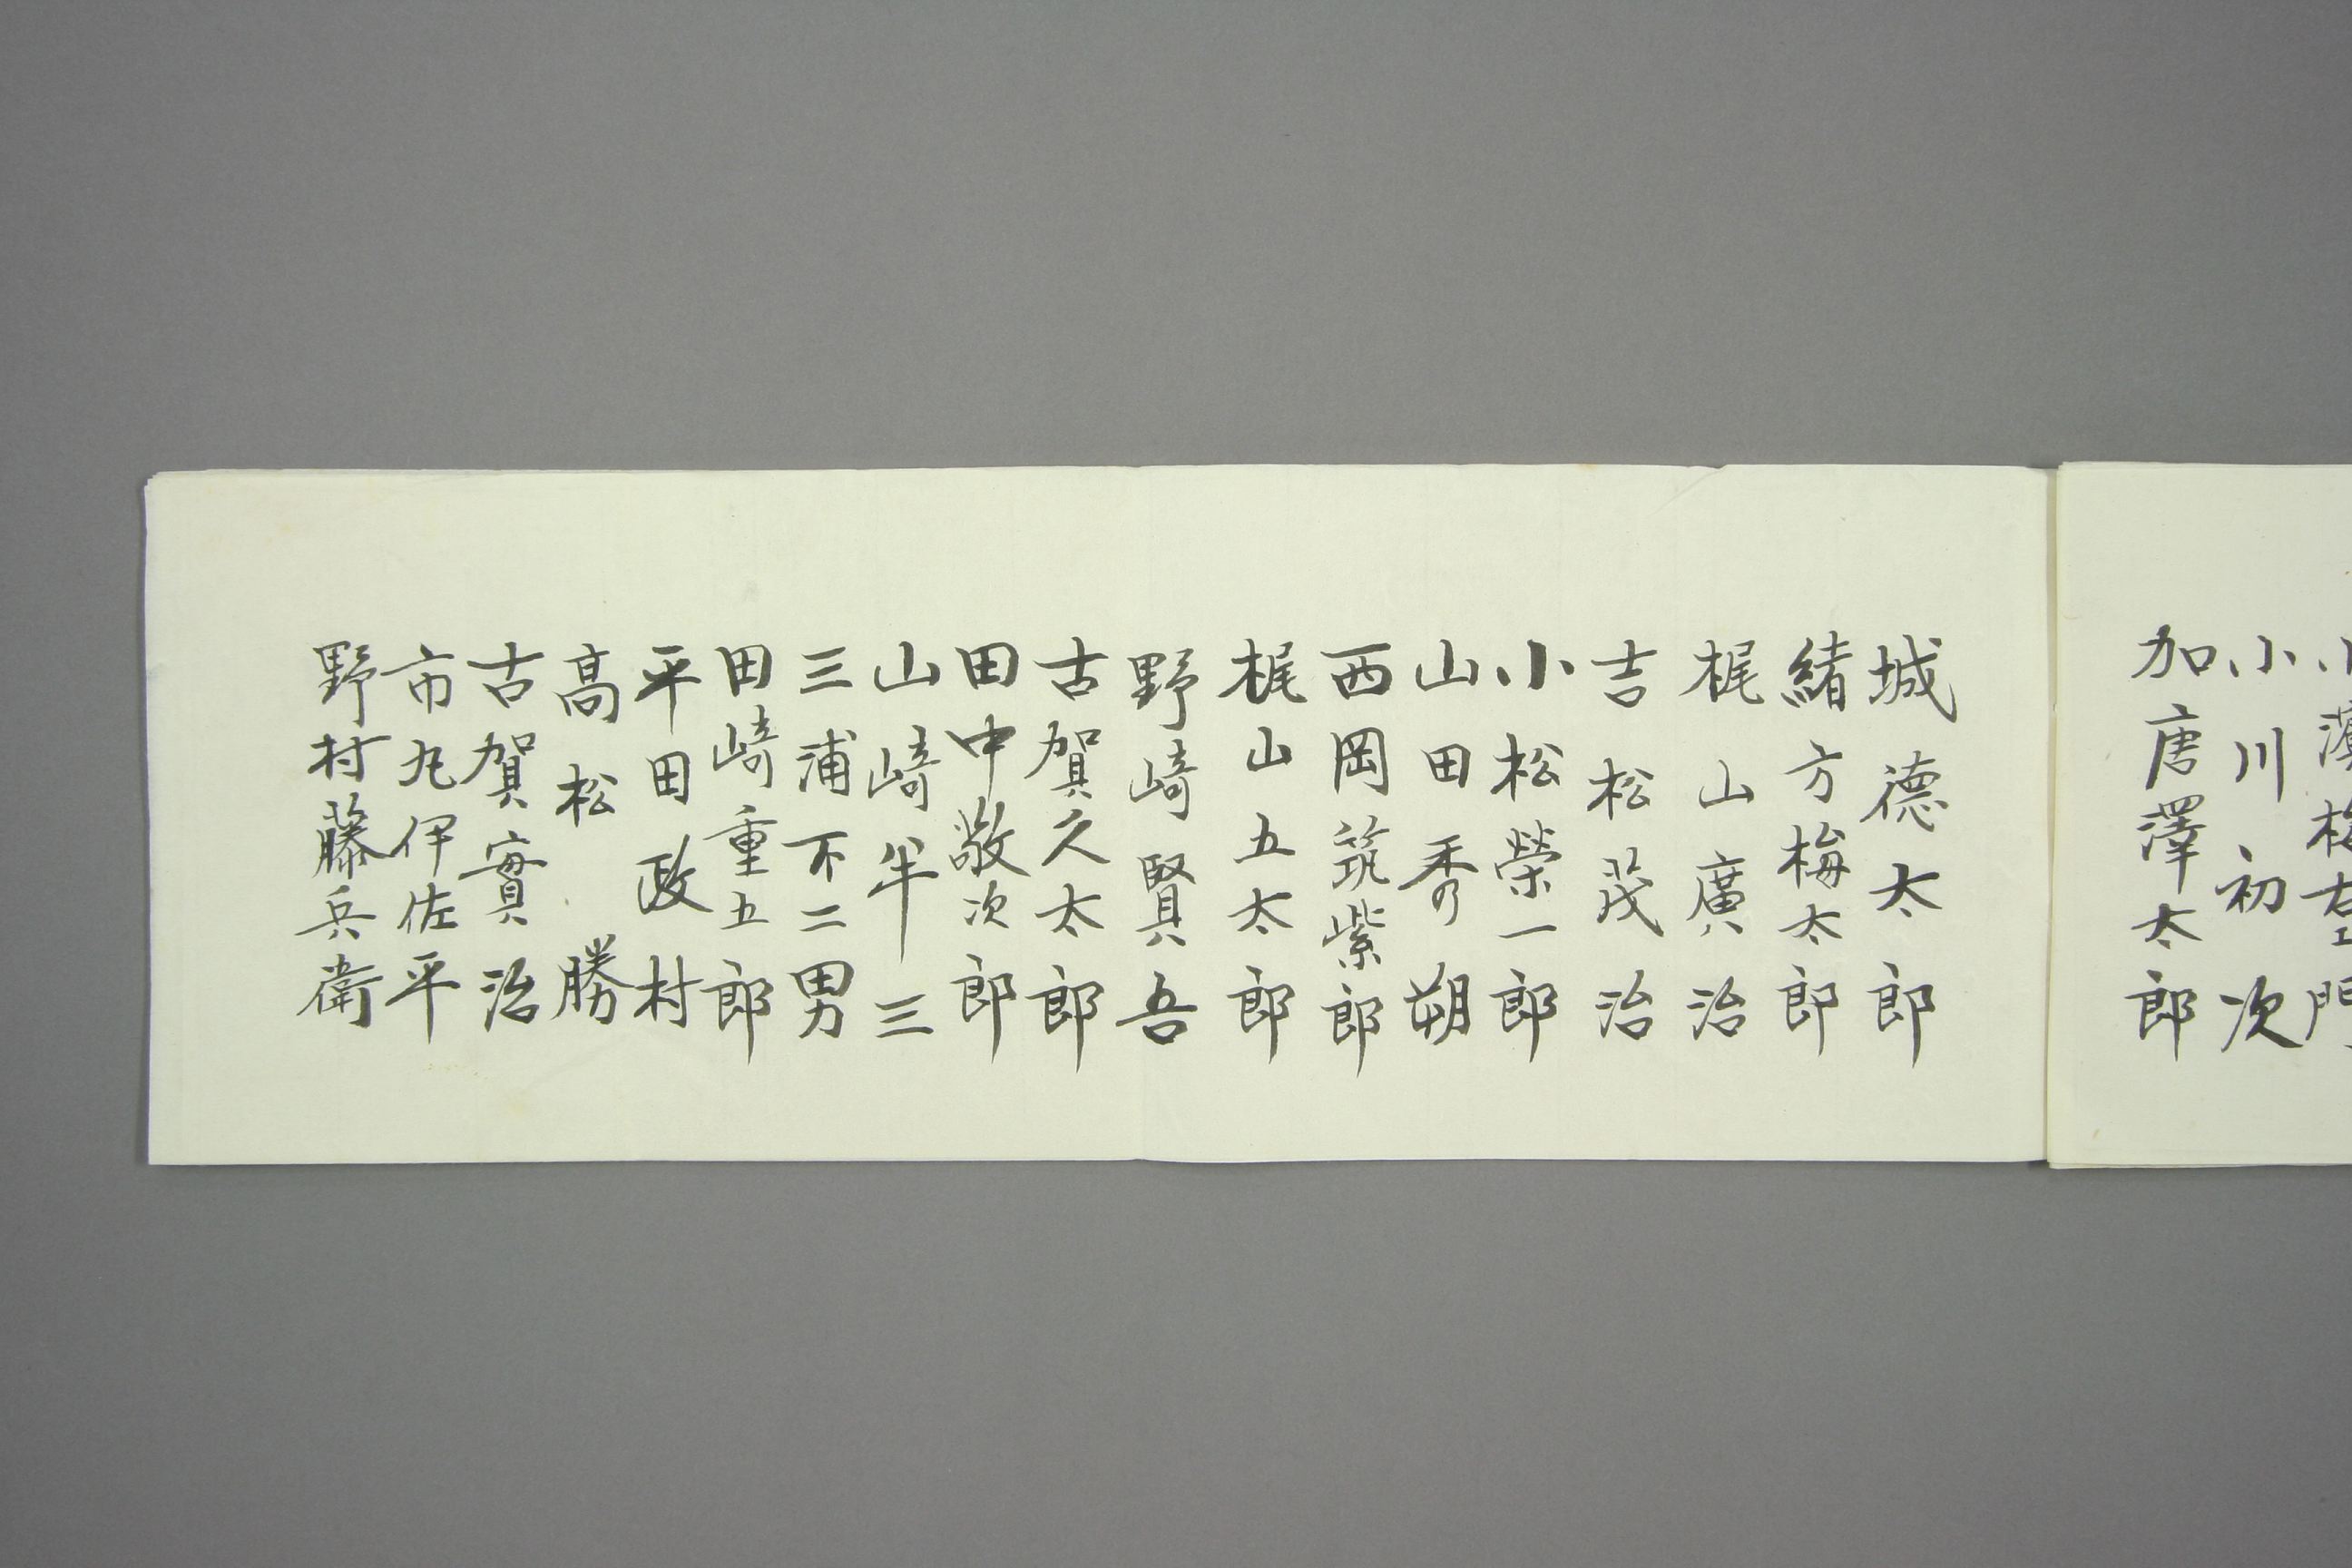 小濱梅左エ門
小川初次
加唐澤太郎
城德太郎
緒方梅太郎
梶山廣治
吉松茂治
小松榮一郎
山田秀朔
西岡筑紫郎
梶山五太郎
野﨑賢吾
古賀久太郎
田中敬次郎
山﨑半三
三浦不二男
田﨑重五郎
平田政村
髙松勝
古賀實治
市丸伊佐平
野村藤兵衛